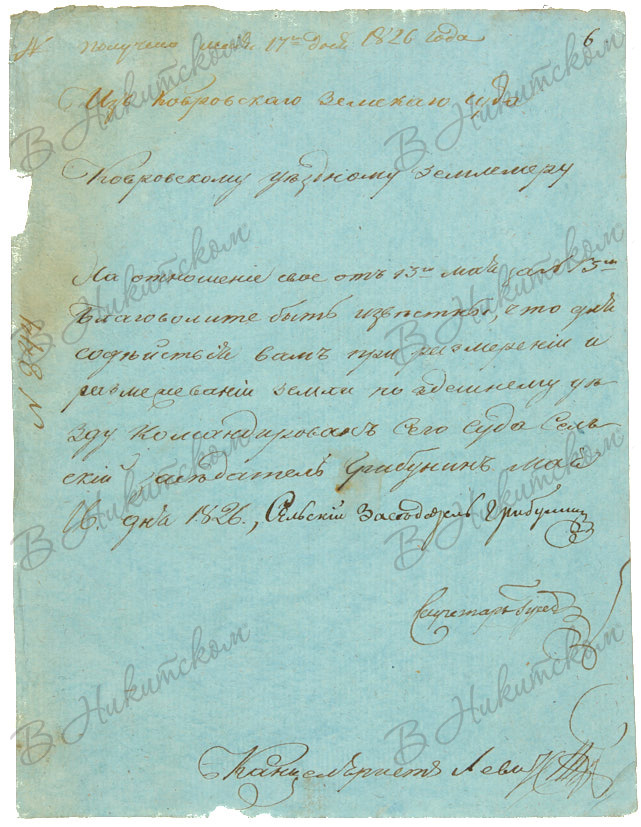 № получено мая 17го дня 1826 года
6
Изъ Ковровскаго земскаго суда
Ковровскому уѣздному землемеру
На отношеніе свое отъ 13го маія за № 3м
благоволите быть извѣстны, что для
содѣйствія вамъ при размереніи и
размежеваніи земли по здешнему уѣ
зду командированъ сего суда Сель
скій засѣдатель Грибунинъ Маія
16 дня 1826, Сельскій Заседатель Грибунин
Секретарь
Канцеляристъ Леви
№ 844
В Никитском
В Никитском
В Никитском
В Никитском
В Никитском
В Никитском
В Никитском
В Никитском